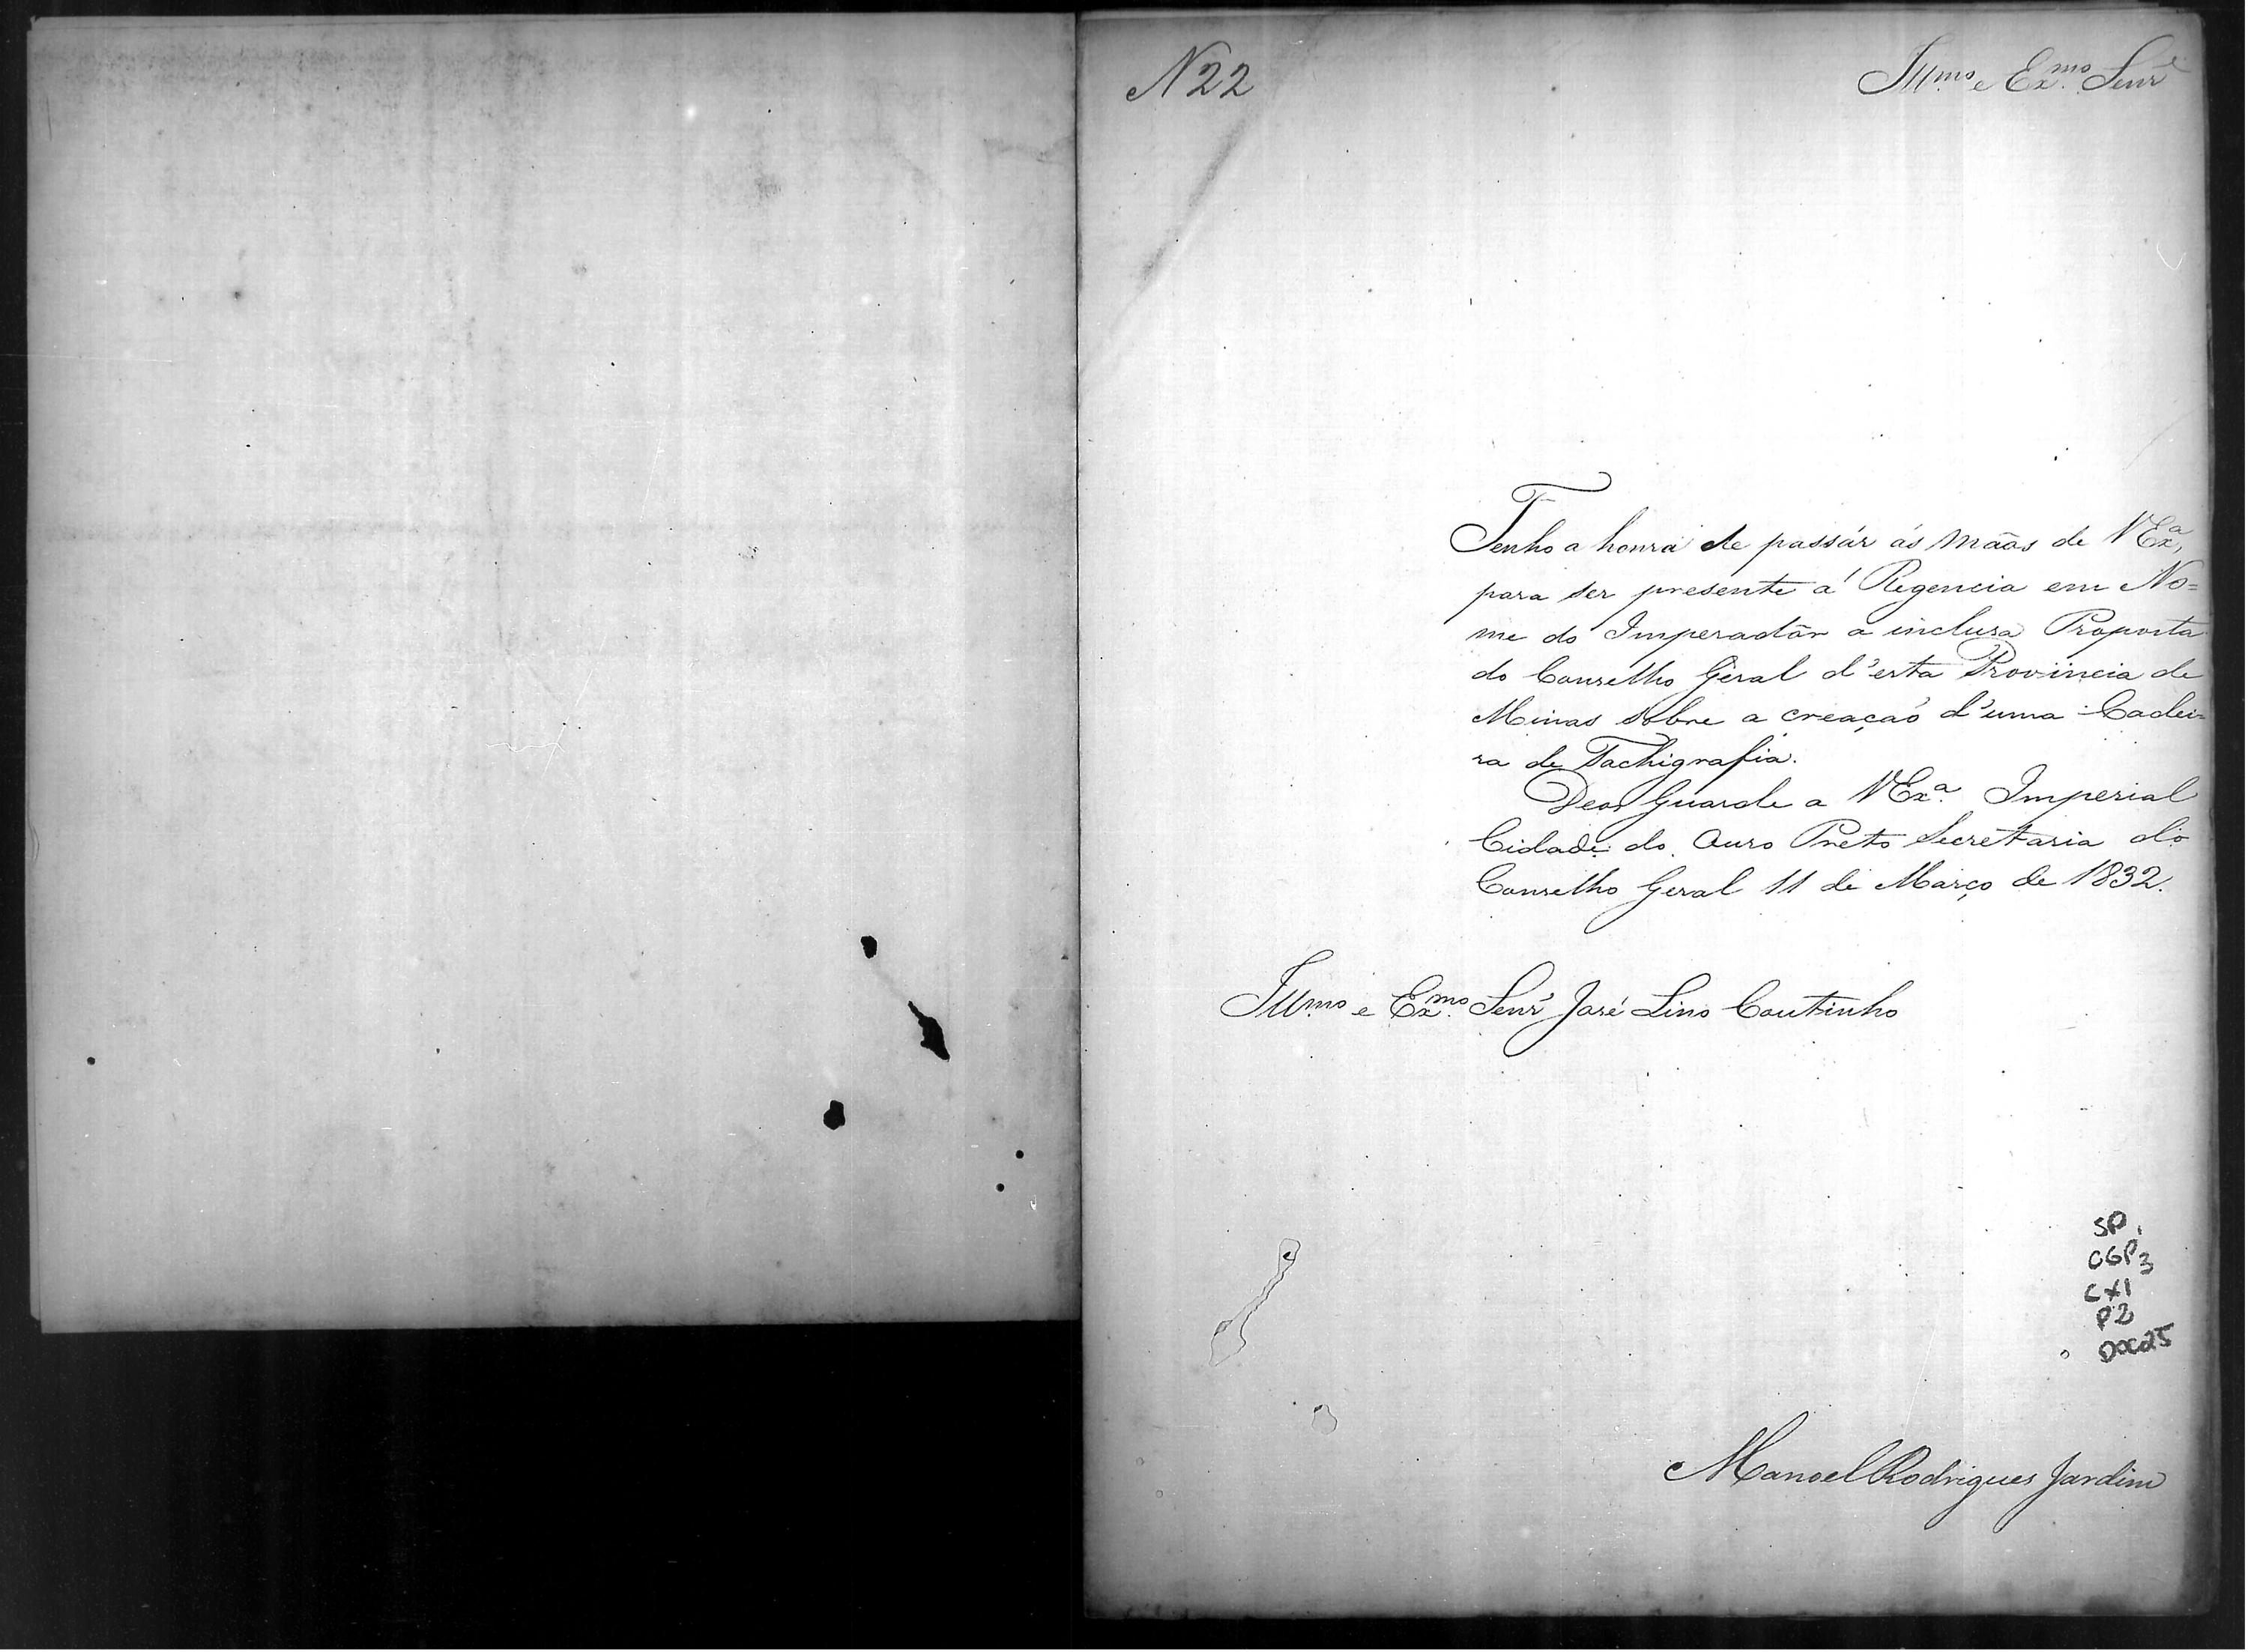 N 22
Ill.mo e Ex.mo Senr.
Tenho a honra de passár ás mãos de VEx.a,
para ser presente á Regencia em No=
me do Imperadôr a inclusa Proposta
do Conselho Geral d'esta Provincia de
Minas sobre a creaçaõ d'uma Cadei-
ra de Tachigrafia.
Deos Guarde a VEx.a Imperial
Cidade do Ouro Preto Secretaria do
Conselho Geral 11 de Março de 1832.
Ill.mo e Ex.mo Senr José Lino Coutinho
SP
CGP3
CX1
P2
DOC25
Manoel Rodrigues Jardim